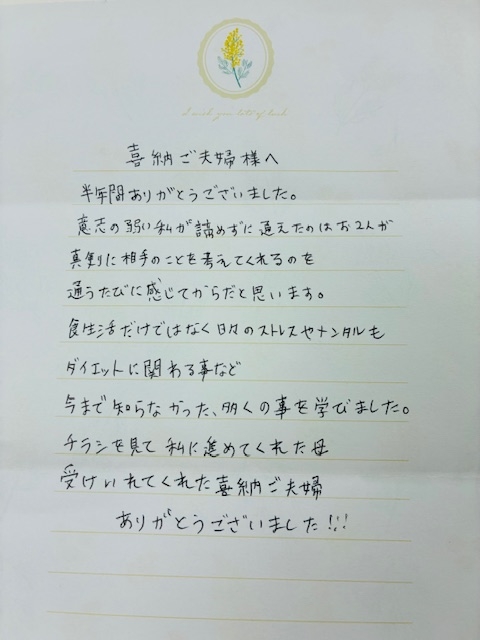 I wish you lots of luck
喜納ご夫婦様へ
半年間ありがとうございました。
意志の弱い私が諦めずに通えたのはお2人が
真剣に相手のことを考えてくれるのを
通うたびに感じてからだと思います。
食生活だけではなく日々のストレスやメンタルも
ダイエットに関わる事など
今まで知らなかった、多くの事を学びました。
チラシを見て私に進めてくれた母
受けいれてくれた喜納ご夫婦
ありがとうございました!!!